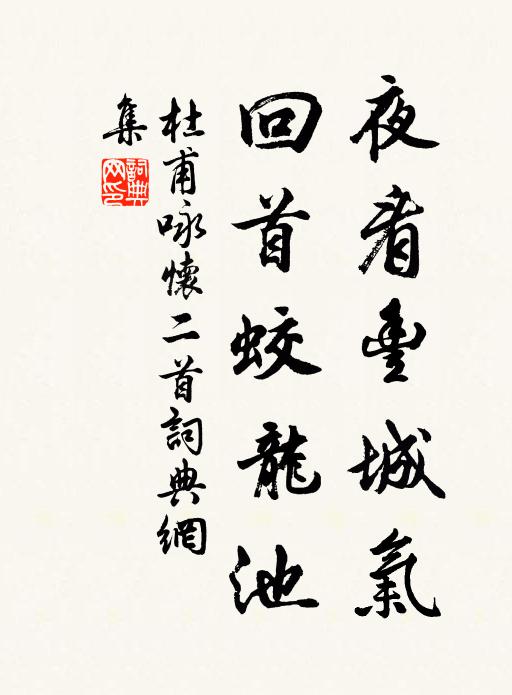 夜看豐城氣
回首蛟龍池
杜甫咏懷二首詞典網
集
詞典
网印